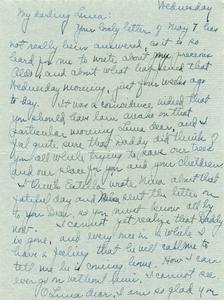 Wednesday
My darling Lima:
Your lovely letter of May 7 has
not really been answered, as it is so
hard for me to write about my precious
and about what happened that
Wednesday morning, just four weeks ago
to-day. It was a coincidence indeed that
you should have been on that
particular morning dear, and I
feel quite sure that Daddy did think of
you all while trying to save our trees
and our place for you and your children
I think wrote about that
fateful day and sent the letter on
to you Dear, so you must know all by
now. I cannot yet realize that Daddy
is gone, and every once in a while I
have a feeling that he will call me to
tell me he is coming home. How I can
ever go on without him, I cannot see
O dear, I am so glad you